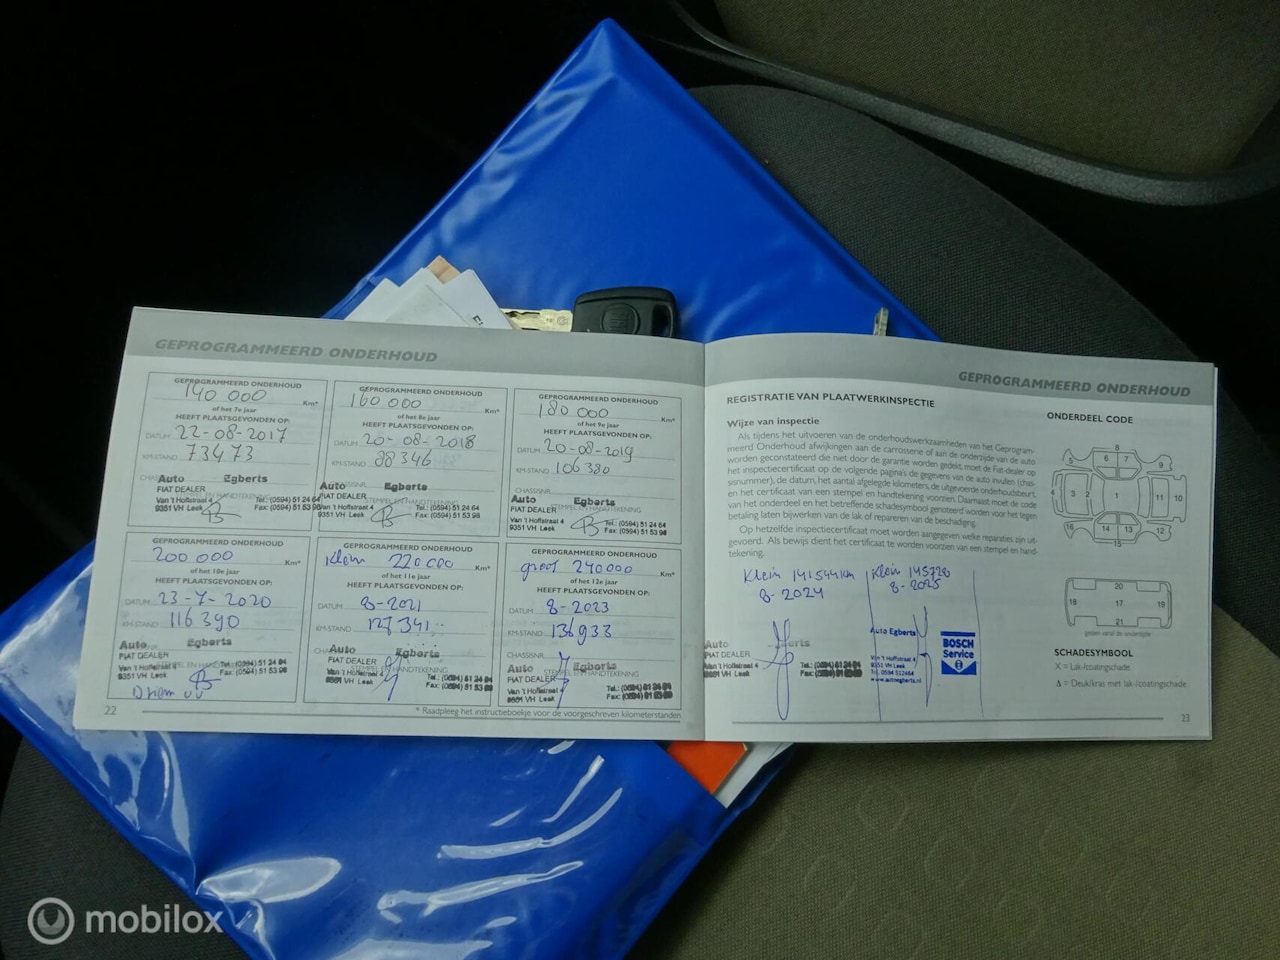 GEPROGRAMMEERD ONDERHOUD
GEPROGRAMMEERD ONDERHOUD
140 000 Km*
of het 7e jaar
HEEFT PLAATSGEVONDEN OP:
DATUM 22-08-2017
KM-STAND 73473
Auto Egberts
FIAT DEALER
Van 't Hoffstraat 4 Tel.: (0594) 51 24 64
9351 VH Leek Fax: (0594) 51 53 98
GEPROGRAMMEERD ONDERHOUD
160 000 Km*
of het 8e jaar
HEEFT PLAATSGEVONDEN OP:
DATUM 20-08-2018
KM-STAND 88346
Auto Egberts
FIAT DEALER
Van 't Hoffstraat 4 Tel.: (0594) 51 24 64
9351 VH Leek Fax: (0594) 51 53 98
GEPROGRAMMEERD ONDERHOUD
180 000 Km*
of het 9e jaar
HEEFT PLAATSGEVONDEN OP:
DATUM 20-08-2019
KM-STAND 106380
CHASSISNR.
Auto Egberts
FIAT DEALER
Van 't Hoffstraat 4 Tel.: (0594) 51 24 64
9351 VH Leek Fax: (0594) 51 53 98
GEPROGRAMMEERD ONDERHOUD
200 000 Km*
of het 10e jaar
HEEFT PLAATSGEVONDEN OP:
DATUM 23-7-2020
KM-STAND 116390
Auto Egberts
FIAT DEALER
Van 't Hoffstraat 4 Tel.: (0594) 51 24 64
9351 VH Leek Fax: (0594) 51 53 98
GEPROGRAMMEERD ONDERHOUD
Klein 220000 Km*
of het 11e jaar
HEEFT PLAATSGEVONDEN OP:
DATUM 8-2021
KM-STAND 127341
Auto Egberts
FIAT DEALER
Van 't Hoffstraat 4 Tel.: (0594) 51 24 64
9351 VH Leek Fax: (0594) 51 53 98
GEPROGRAMMEERD ONDERHOUD
groot 240000 Km*
of het 12e jaar
HEEFT PLAATSGEVONDEN OP:
DATUM 8-2023
KM-STAND 136933
CHASSISNR.
Auto Egberts
FIAT DEALER
Van 't Hoffstraat 4 Tel.: (0594) 51 24 64
9351 VH Leek Fax: (0594) 51 53 98
22
* Raadpleeg het instructieboekje voor de voorgeschreven kilometerstanden
GEPROGRAMMEERD ONDERHOUD
REGISTRATIE VAN PLAATWERKINSPECTIE
Wijze van inspectie
Als tijdens het uitvoeren van de onderhoudswerkzaamheden van het Geprogram-
meerd Onderhoud afwijkingen aan de carrosserie of aan de onderzijde van de auto
worden geconstateerd die niet door de garantie worden gedekt, moet de Fiat-dealer op
het inspectiecertificaat op de volgende pagina's de gegevens van de auto invullen (chas-
sisnummer), de datum, het aantal afgelegde kilometers, de uitgevoerde onderhoudsbeurt,
en het certificaat van een stempel en handtekening voorzien. Daarnaast moet de code
van het onderdeel en het betreffende schadesymbool genoteerd worden voor het tegen
betaling laten bijwerken van de lak of repareren van de beschadiging.
Op hetzelfde inspectiecertificaat moet worden aangegeven welke reparaties zijn uit-
gevoerd. Als bewijs dient het certificaat te worden voorzien van een stempel en hand-
tekening.
Klein 141544km
8-2024
Klein 145728
8-2025
Auto
FIAT DEALER
Van 't Hoffstraat 4
9351 VH Leek
Auto Egberts
Van 't Hoffstraat 4
9351 VH Leek
Tel. 0594 512464
www.autoegberts.nl
BOSCH
Service
ONDERDEEL CODE
8
5 6 7 9
4 3 2 1 11 10
16 14 13 12
15
20
18 17 19
21
SCHADESYMBOOL
X = Lak-/coatingschade.
Δ = Deuk/kras met lak-/coatingschade.
23
mobilox